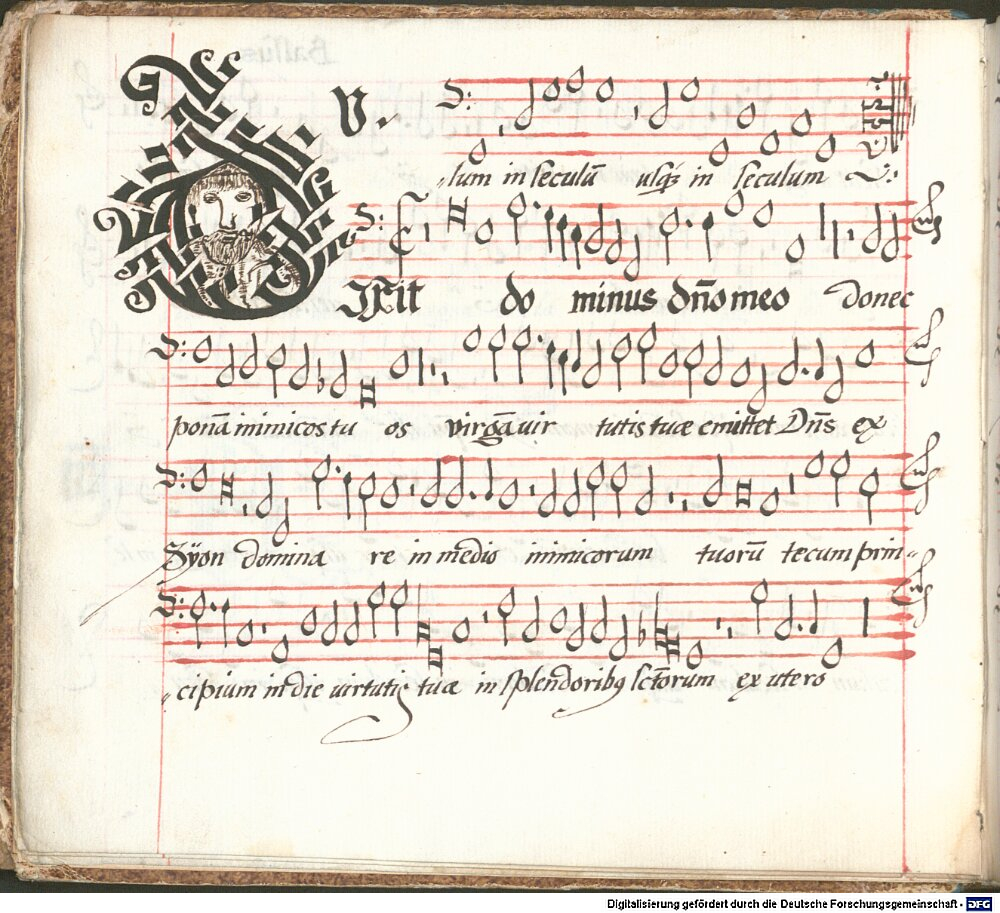 V.
„lum in seculũ usq3 in seculum
DIxit do minus dño meo donec
ponã inimicos tu os virgã vir tutis tuæ emittet Dñs ex
Syon domina re in medio inimicorum tuorũ tecum prin„
„cipium in die virtutis tuæ in splendoribꝰ sctõrum ex utero
Digitalisierung gefördert durch die Deutsche Forschungsgemeinschaft - DFG